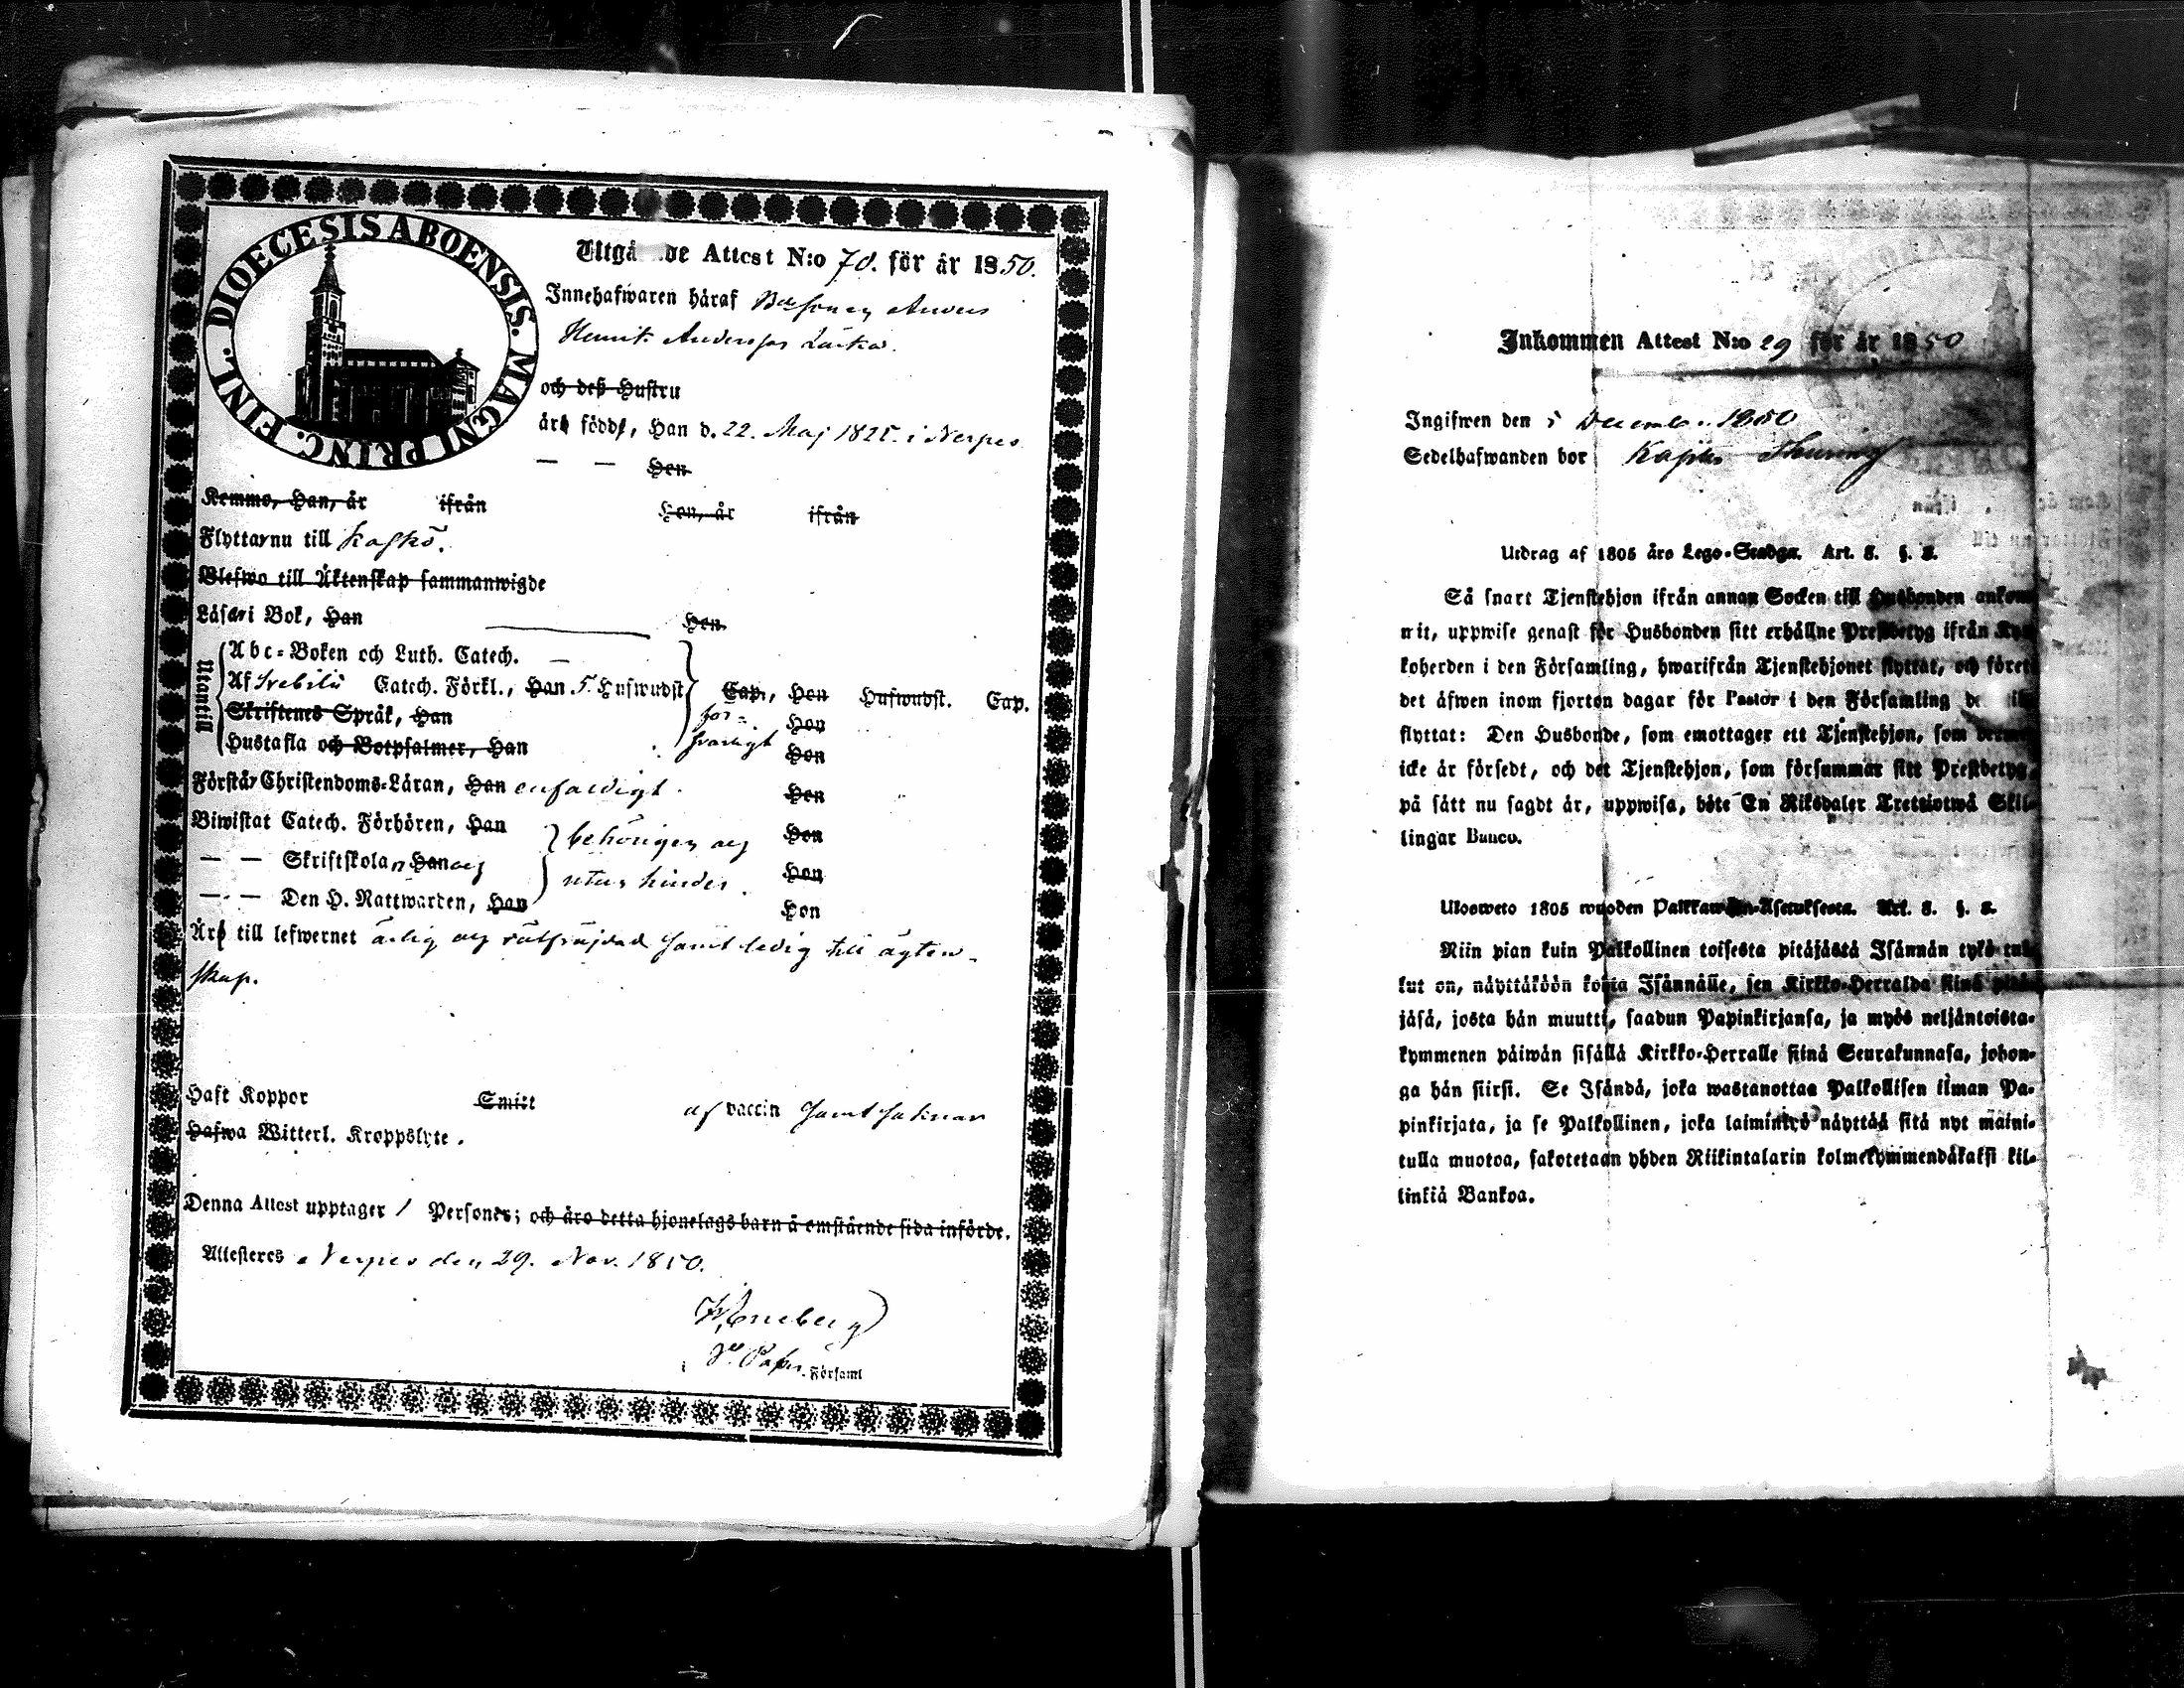 DIOECESIS ABOENSIS. MAGNI PRINC. FINL.
Utgå de Attest N:o 70. för år 1850.
Innehafwaren håraf Anders
Henrik Andersson
och deß Hustru
åro födde, Han d. 22. Maj 1825. i Nerpes
— — Hon
Kemmo, Han, år ifrån Hon, år ifrån
Flyttar nu till Kaskö.
Blefwo till Äktenskap sammanwigde
Låsa i Bok, Han Hon
Utantill
Abc-Boken och Luth. Catech. —
Af Svebilii Catech. Förkl., Han 5. Hufwudst. Cap., Hon Hufwudst. Cap.
Skriftenes Språk, Han för- Hon
Hustafla och Botpsalmer, Han svarligt Hon
Förstår Christendoms-Låran, Han enfaldigt. Hon
Biwistat Catech. Förhören, Han behörigen och Hon
— — Skriftskolan Han och Hon
— — Den H. Nattwarden, Han utan hinder. Hon
Äro till lefwernet ärlig och samt ledig till ägten-
skap.
Haft Koppor Smitt af vaccin samt saknar
Hafwa Witterl. Kroppslyte.
Denna Attest upptager 1 Personer; och åro detta hjonelags barn å omstående sida införde.
Attesteres Nerpes den 29. Nov. 1850.
Församl
Inkommen Attest N:o 29 för år 1850
Ingifwen den 5 December 1850
Sedelhafwanden bor
Utdrag af 1805 års Lego-Stadga. Art. 8. §. 2.
Så snart Tjenstehjon ifrån annan Socken till Husbonden ankom-
mit, uppwise genast för Husbonden sitt erhållne Prestbetyg ifrån Kyr-
koherden i den Församling, hwarifrån Tjenstehjonet flyttat, och förete
det åfwen inom fjorton dagar för Pastor i den Församling
flyttat: Den Husbonde, som emottager ett Tjenstehjon, som dermed
icke år försedt, och det Tjenstehjon, som försummar sitt Prestbetyg,
på sått nu sagdt år, uppwisa, böte En Riksdaler Trettiotwå Skil-
lingar Banco.
Ulosweto 1805 wuoden Palkkawåen-Asetuksesta. Art. 8. §. 2.
Niin pian kuin Palkollinen toisesta pitåjåstå Isånnån tykö tul-
lut on, nåyttåköön kohta Isånnålle, sen Kirkko-Herralda siinå pitå-
jåså, josta hån muutti, saadun Papinkirjansa, ja myös neljåntoista-
kymmenen påiwån sisållå Kirkko-Herralle siinå Seurakunnasa, johon-
ga hån siirsi. Se Isåndå, joka wastanottaa Palkollisen ilman Pa-
pinkirjata, ja se Palkollinen, joka laiminlyö nåyttåå sitå nyt maini-
tulla muotoa, sakotetaan yhden Riikintalarin kolmekymmendåkaksi kil-
linkiå Bankoa.